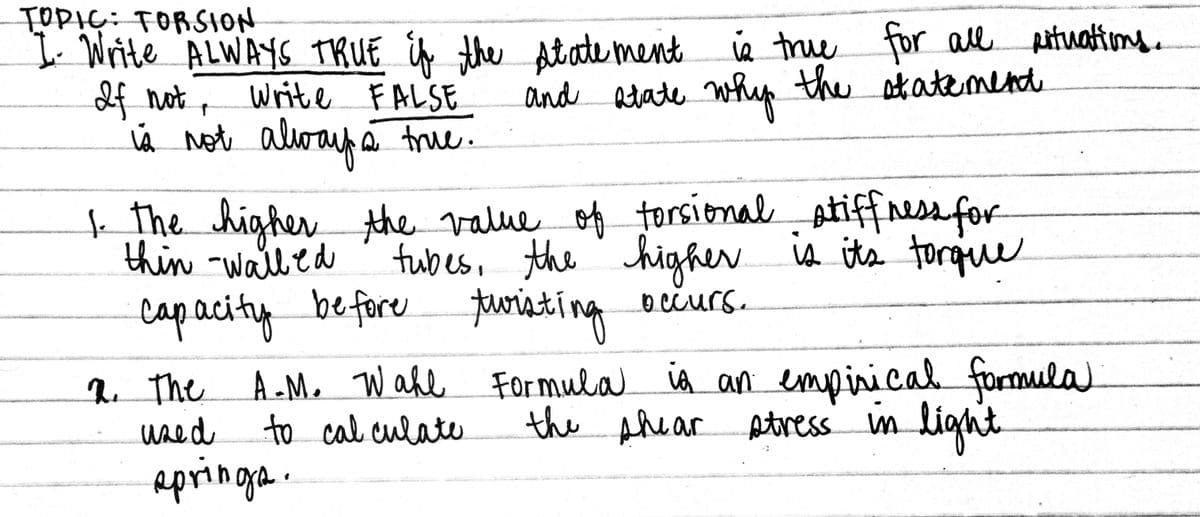 TOPIC: TORSION
I. Write ALWAYS TRUE if the statement is true for all situations.
If not, Write FALSE and state why the statement
is not always true.
1. The higher the value of torsional stiffness for
thin-walled tubes, the higher is its torque
capacity before twisting occurs.
2. The A.M. Wahl Formula is an empirical formula
used to calculate the shear stress in light
springs.